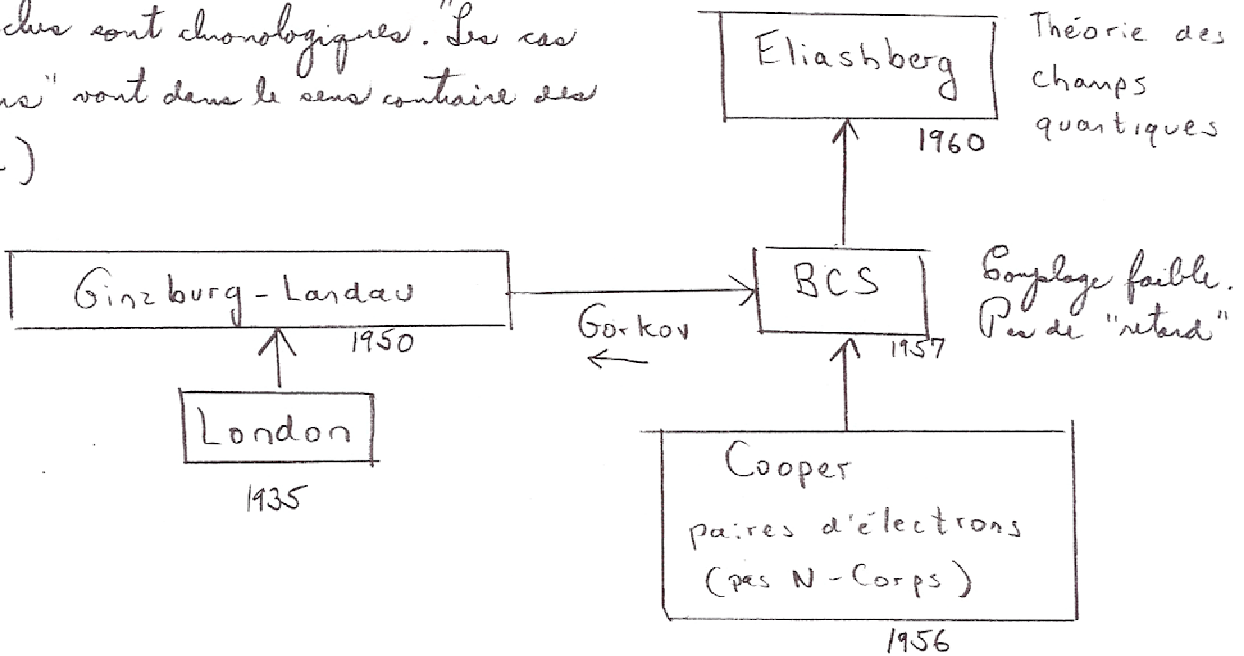 sont chronologiques. "Les cas
" vont dans le sens contraire des
)
Eliashberg
1960
Théorie des
champs
quantiques
Ginzburg-Landau
1950
Gorkov
BCS
1957
Couplage faible.
Pas de "retard"
London
1935
Cooper
paires d'électrons
(pas N-Corps)
1956